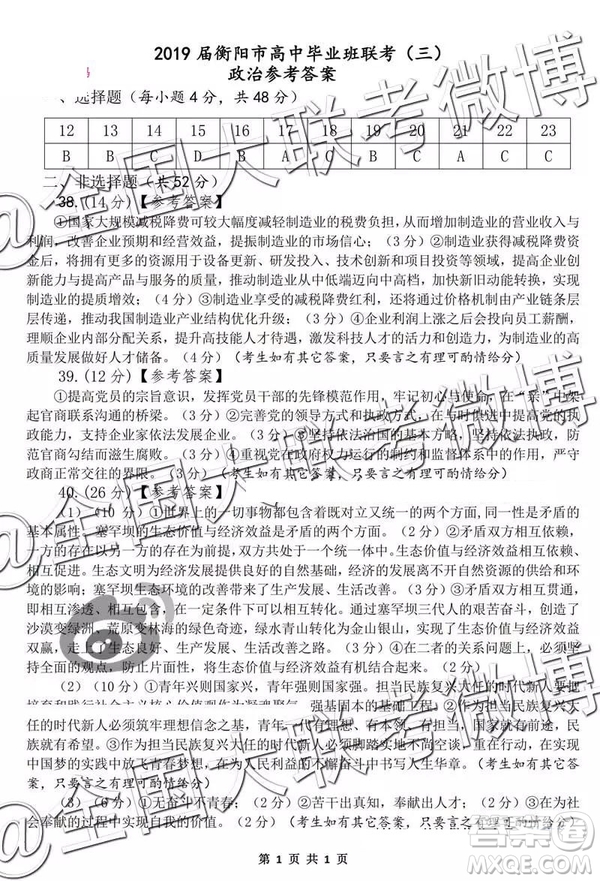 2019 届衡阳市高中毕业班联考（三）
政治参考答案
、选择题（每小题 4 分，共 48 分）
12 13 14 15 16 17 18 19 20 21 22 23
B B C D B A C B C A C C
二、非选择题（共 52 分）
38.(14 分)【参考答案】
①国家大规模减税降费可较大幅度减轻制造业的税费负担，从而增加制造业的营业收入与
利润，改善企业预期和经营效益，提振制造业的市场信心；（3 分）②制造业获得减税降费资
金后，将将更多的资源用于设备更新、研发投入、技术创新和项目投资等领域，提高企业创新
能力与提高产品与服务的质量，推动制造业从中低端迈向中高端，加快新旧动能转换，实现
制造业转型升级；（4 分）③制造业享受的减税降费成果，还可通过价格机制由产业链条层
层传递，推动我国制造业产业结构优化升级；（3 分）④企业利润上涨之后会投向员工薪酬，
理顺企业内部分配关系，提升高技能人才待遇，激发科技人才的活力与创造力，为制造业发
展做好人才储备。（4 分）（考生如有其它答案，只要言之有理可酌情给分）
39.(12 分)【参考答案】
①提高党员的宗旨意识，发挥党员干部的先锋模范作用，牢记初心与使命，在“亲”中架
起官商联系沟通的桥梁。（3 分）②完善党的领导方式和执政方式，在与时俱进中提高党的执
政能力，支持企业家依法发展企业。（3 分）③坚持依法治国的基本方略，坚持依法执政，防
范官商勾结而滋生腐败。（3 分）④健全对政府权力运行的制约和监督体系中的作用，严守
政商正常交往的界限。（3 分）（考生如有其它答案，只要言之有理可酌情给分）
40.(26 分)【参考答案】
（1）（10 分）①世界上的一切事物都包含着既对立又统一的两个方面，（2 分）矛盾是事物的
基本属性；塞罕坝的生态价值与经济效益是矛盾的两个方面。（2 分）②矛盾双方相互依赖，
一方的存在以另一方的存在为前提，双方共处于一个统一体中。生态价值与经济效益相互依赖、
相互促进。生态文明为经济发展提供良好的环境，而不合理的开发会带来生态的恶果和环
境的影响；生态环境的改善带来了经济效益的发展。（2 分）③矛盾双方相互贯通，
即相互渗透、相互包含，在一定条件下可以相互转化。通过塞罕坝三代人的艰苦奋斗，创造了
沙漠变绿洲，荒原变林海的绿色奇迹，绿水青山转化为金山银山，实现了生态价值与经济效益
双赢，走上了生态良好、生产发展、生活改善的绿色发展道路。（2 分）④在二者的对立中
把握统一，在统一中把握对立，坚持生态价值与经济效益有机结合起来。（2 分）
（2）（10 分）①青年兴则国家兴，青年强则国家强。担当民族复兴大任的时代新人要也
培育和践行社会主义核心价值观作为凝魂聚气、强基固本的基础工程。（4 分）②担当民族复兴大任
的时代新人必须筑牢理想信念之基，青年一代有理想、有本领、有担当，国家就有前途，民
族就有希望。（3 分）③作为担当民族复兴大任的时代新人必须脚踏实地不尚空谈，在实现中
国梦的实践中放飞青春梦想，在为人民利益的不懈奋斗中书写人生华章。（考生如有其它答
案，只要言之有理可酌情给分）
（3）（6 分）①无奋斗不青春；（2 分）②苦干出真知，奉献出人才；（2 分）③在为社
会奉献中实现自我的价值。（2 分）（考生如有其它答案，只要言之有理可酌情给分）
第 1 页 共 1 页
@全国大联考微博
@全国大联考微博
@全国大联考微博
答案圈
MXQE.COM